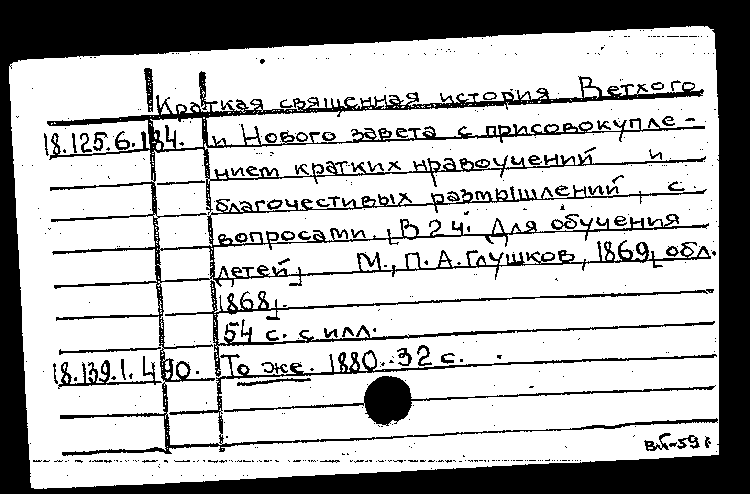 Краткая священная история Ветхого
18.125.6.184. и Нового завета с присовокупле-
нием кратких нравоучений и
благочестивых размышлений, с
вопросами. [В 2 ч. Для обучения
детей] М., П. А. Глушков, 1869 [обл.
1868].
54 с. с илл.
18.139.1.490. То же. 1880. 32 с.